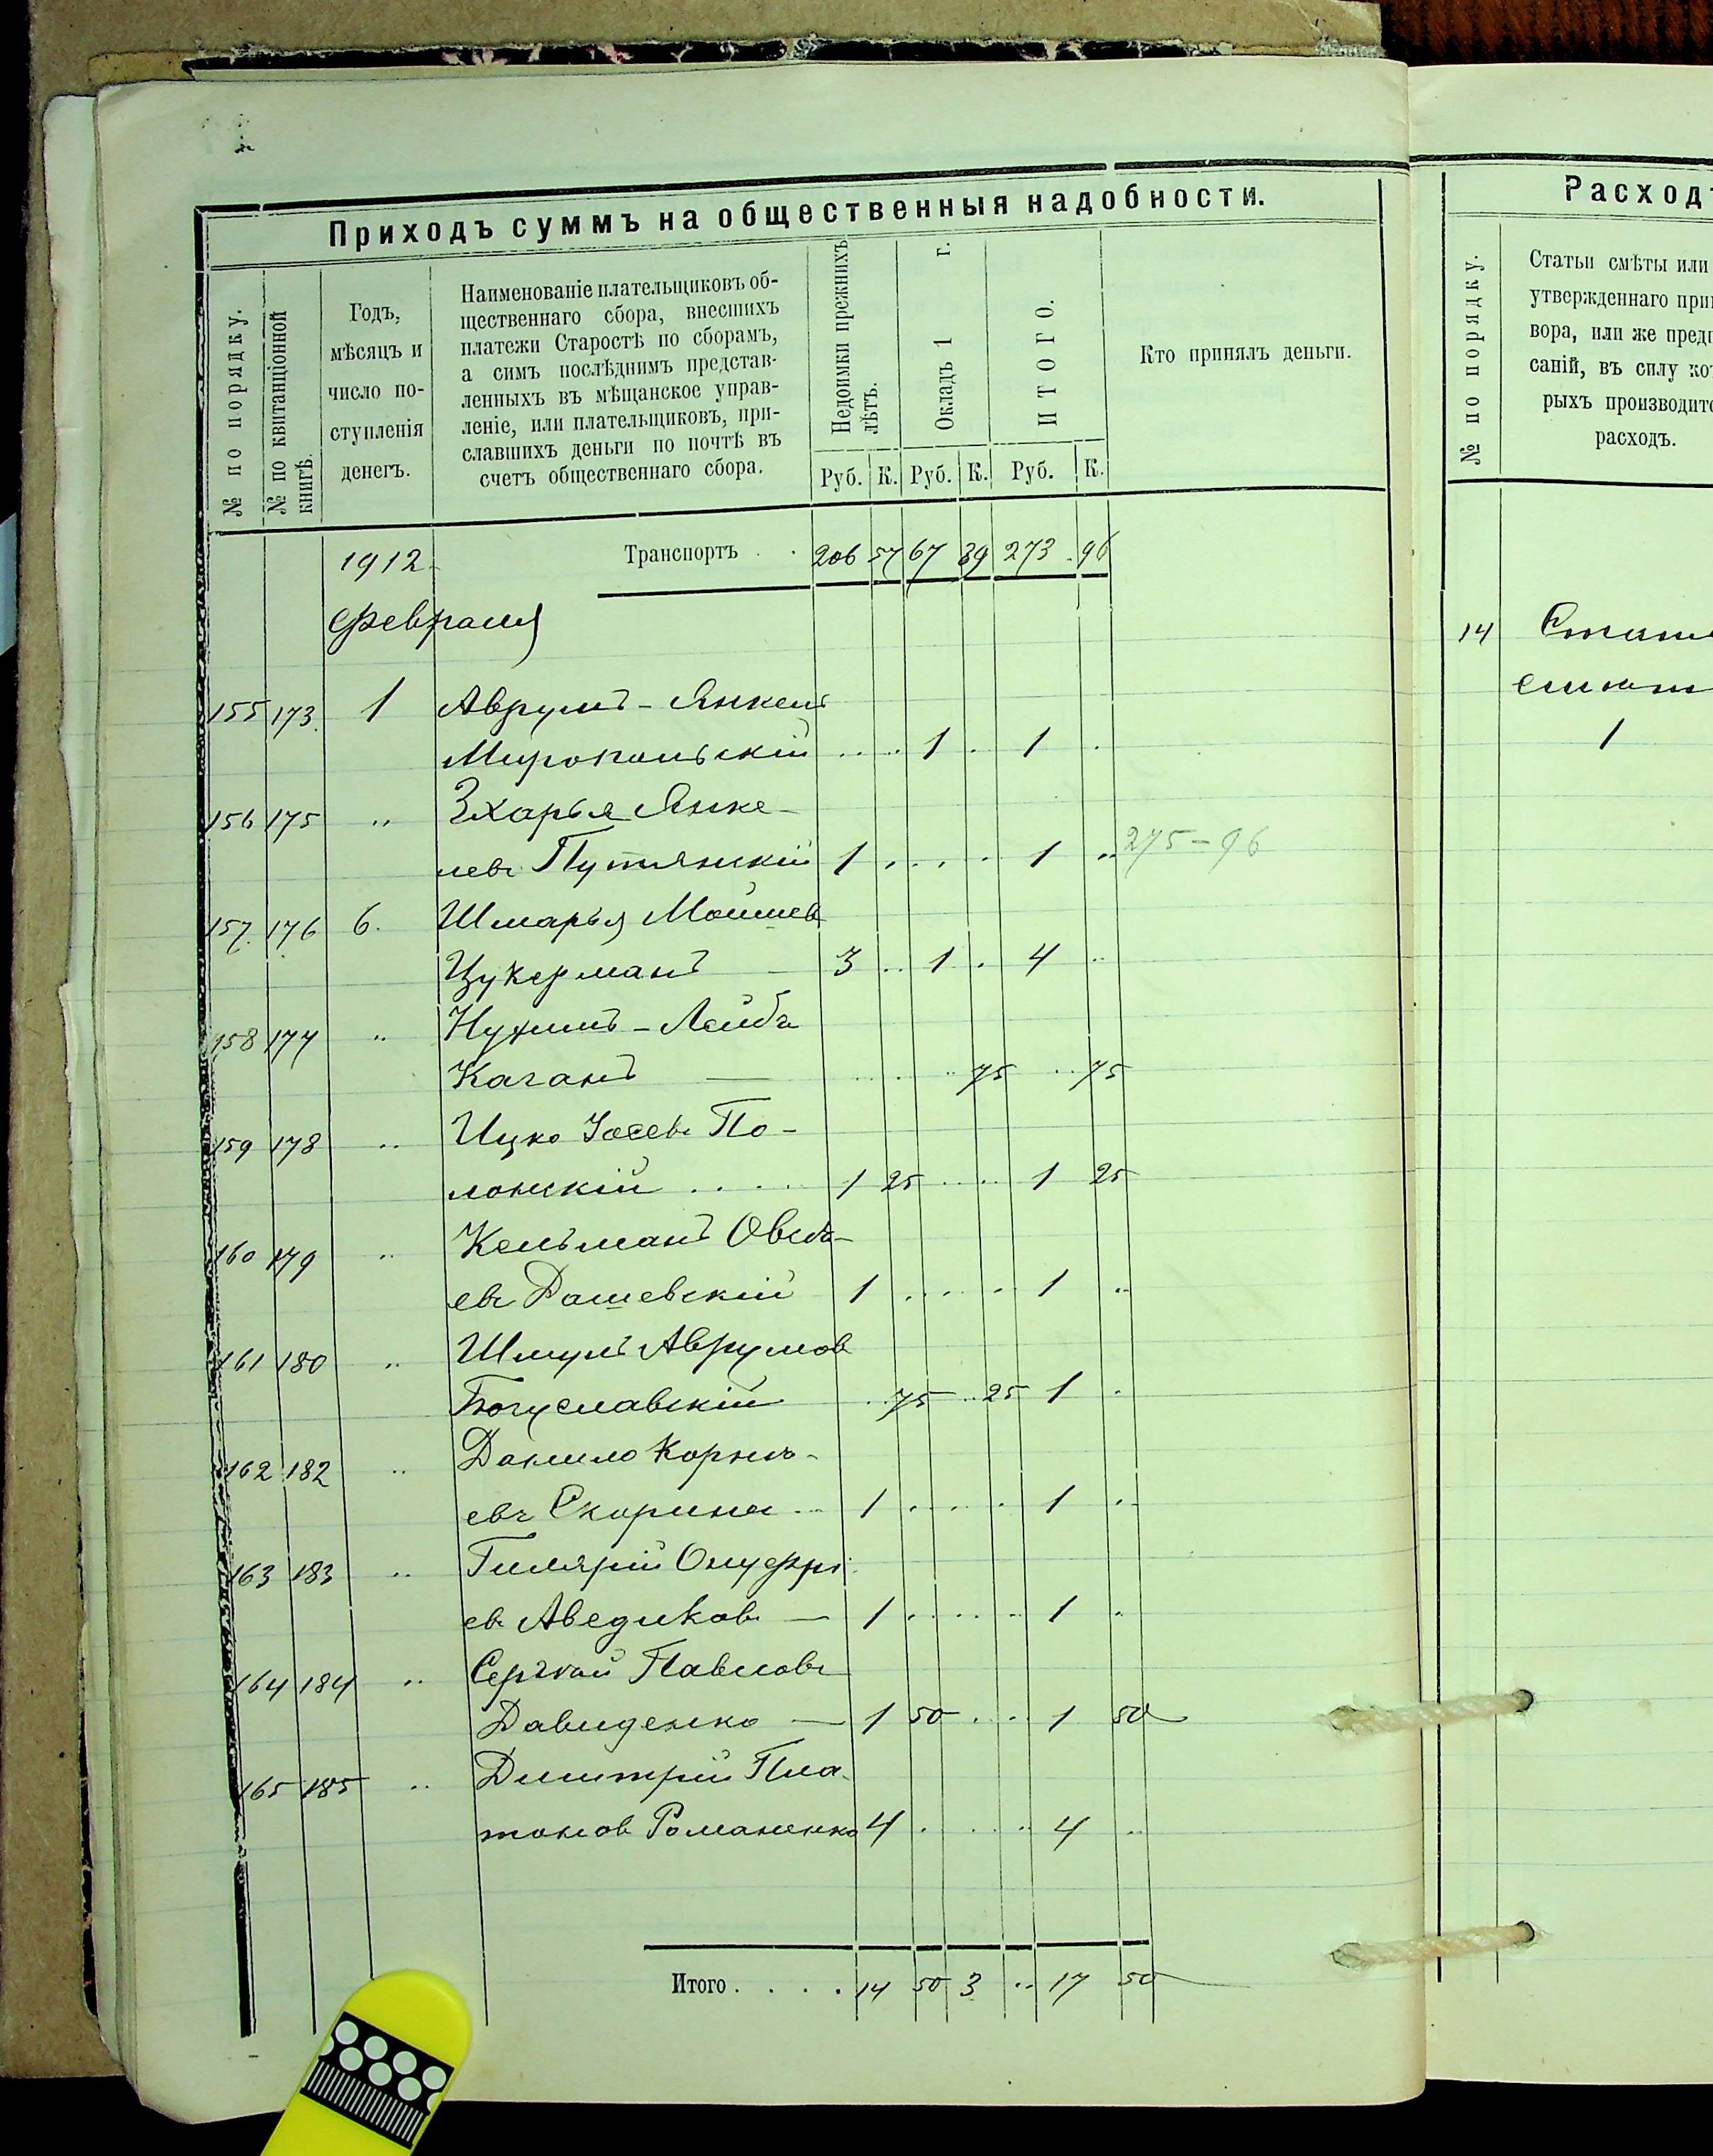 Приходъ суммъ на общественныя надобности.
№ по порядку.
№ по квитанціонной
книгѣ.
Годъ,
мѣсяцъ и
число по-
ступленія
денегъ.
Наименованіе плательщиковъ об-
щественнаго сбора, внесшихъ
платежи Старостѣ по сборамъ,
а симъ послѣднимъ представ-
ленныхъ въ мѣщанское управ-
леніе, или плательщиковъ, при-
славшихъ деньги по почтѣ въ
счетъ общественнаго сбора.
Недоимки прежнихъ
лѣтъ.
Окладъ 1 г.
ИТОГО.
Кто принялъ деньги.
Руб. К. Руб. К. Руб. К.
1912 Транспортъ . . 206 57 67 39 273 96
Февраля
155 173 1 Аврумъ-Янкель
Миропольскій 1 . 1 .
156 175 " Зхарья Янке-
левъ Путянскій 1 . . . . 1 .. 275-96
157. 176 6. Шмарья Мошшев
Цукерманъ - 3 .. 1 . 4 ..
158 177 " Нухимъ-Лейба
Каганъ — 75 75
159 178 " Ицко Іосевъ По-
лонскій . . . . . 1 25 1 25
160 179 " Кельманъ Овсѣ-
евъ Дашевскій 1 . . . . 1 ..
161 180 " Шмуль Аврумов
Богуславскій 75 25 1 .
162 182 " Данило Корнѣ-
евъ Скорина 1 . . . . 1 ..
163 183 " Гилярій Онуфрі
ев Аведиковъ — 1 . . . . 1 ..
164 184 " Сергѣй Павловъ
Давиденко — 1 50 . . 1 50
165 185 " Дмитрій Пла-
тонов Романенко 4 . . . . 4 ..
Итого . . . . 14 50 3 .. 17 50
Расходъ
№ по порядку.
Статьи смѣты или
утвержденнаго при
вора, или же пред
саній, въ силу ко
рыхъ производит
расходъ.
14
1